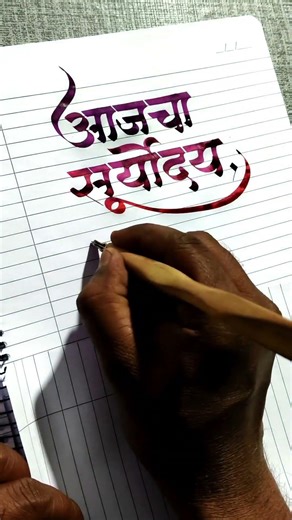 आजचा
सूर्योदय.